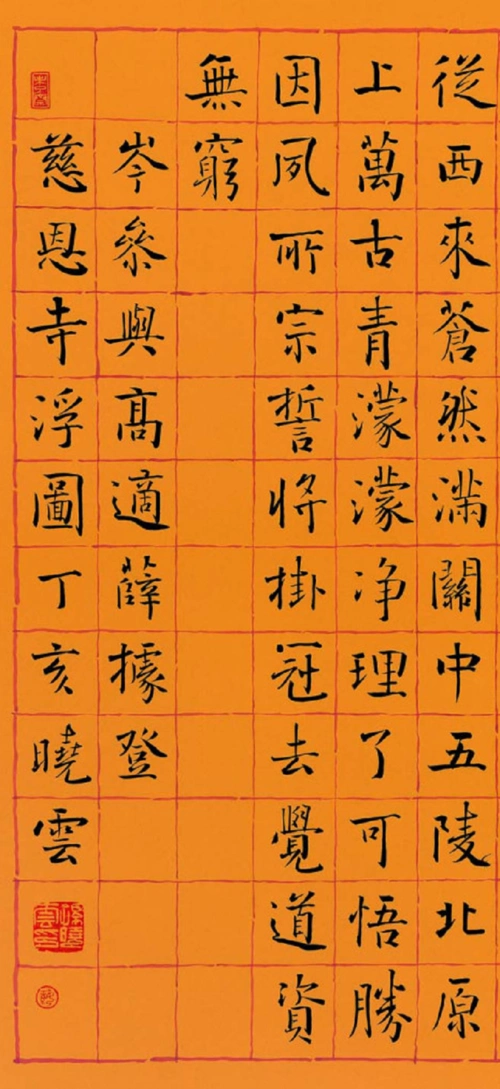 從西來蒼然滿關中五陵北原
上萬古青濛濛净理了可悟勝
因夙所宗誓將掛冠去覺道資
無窮
岑參與高適薛據登
慈恩寺浮圖丁亥曉雲